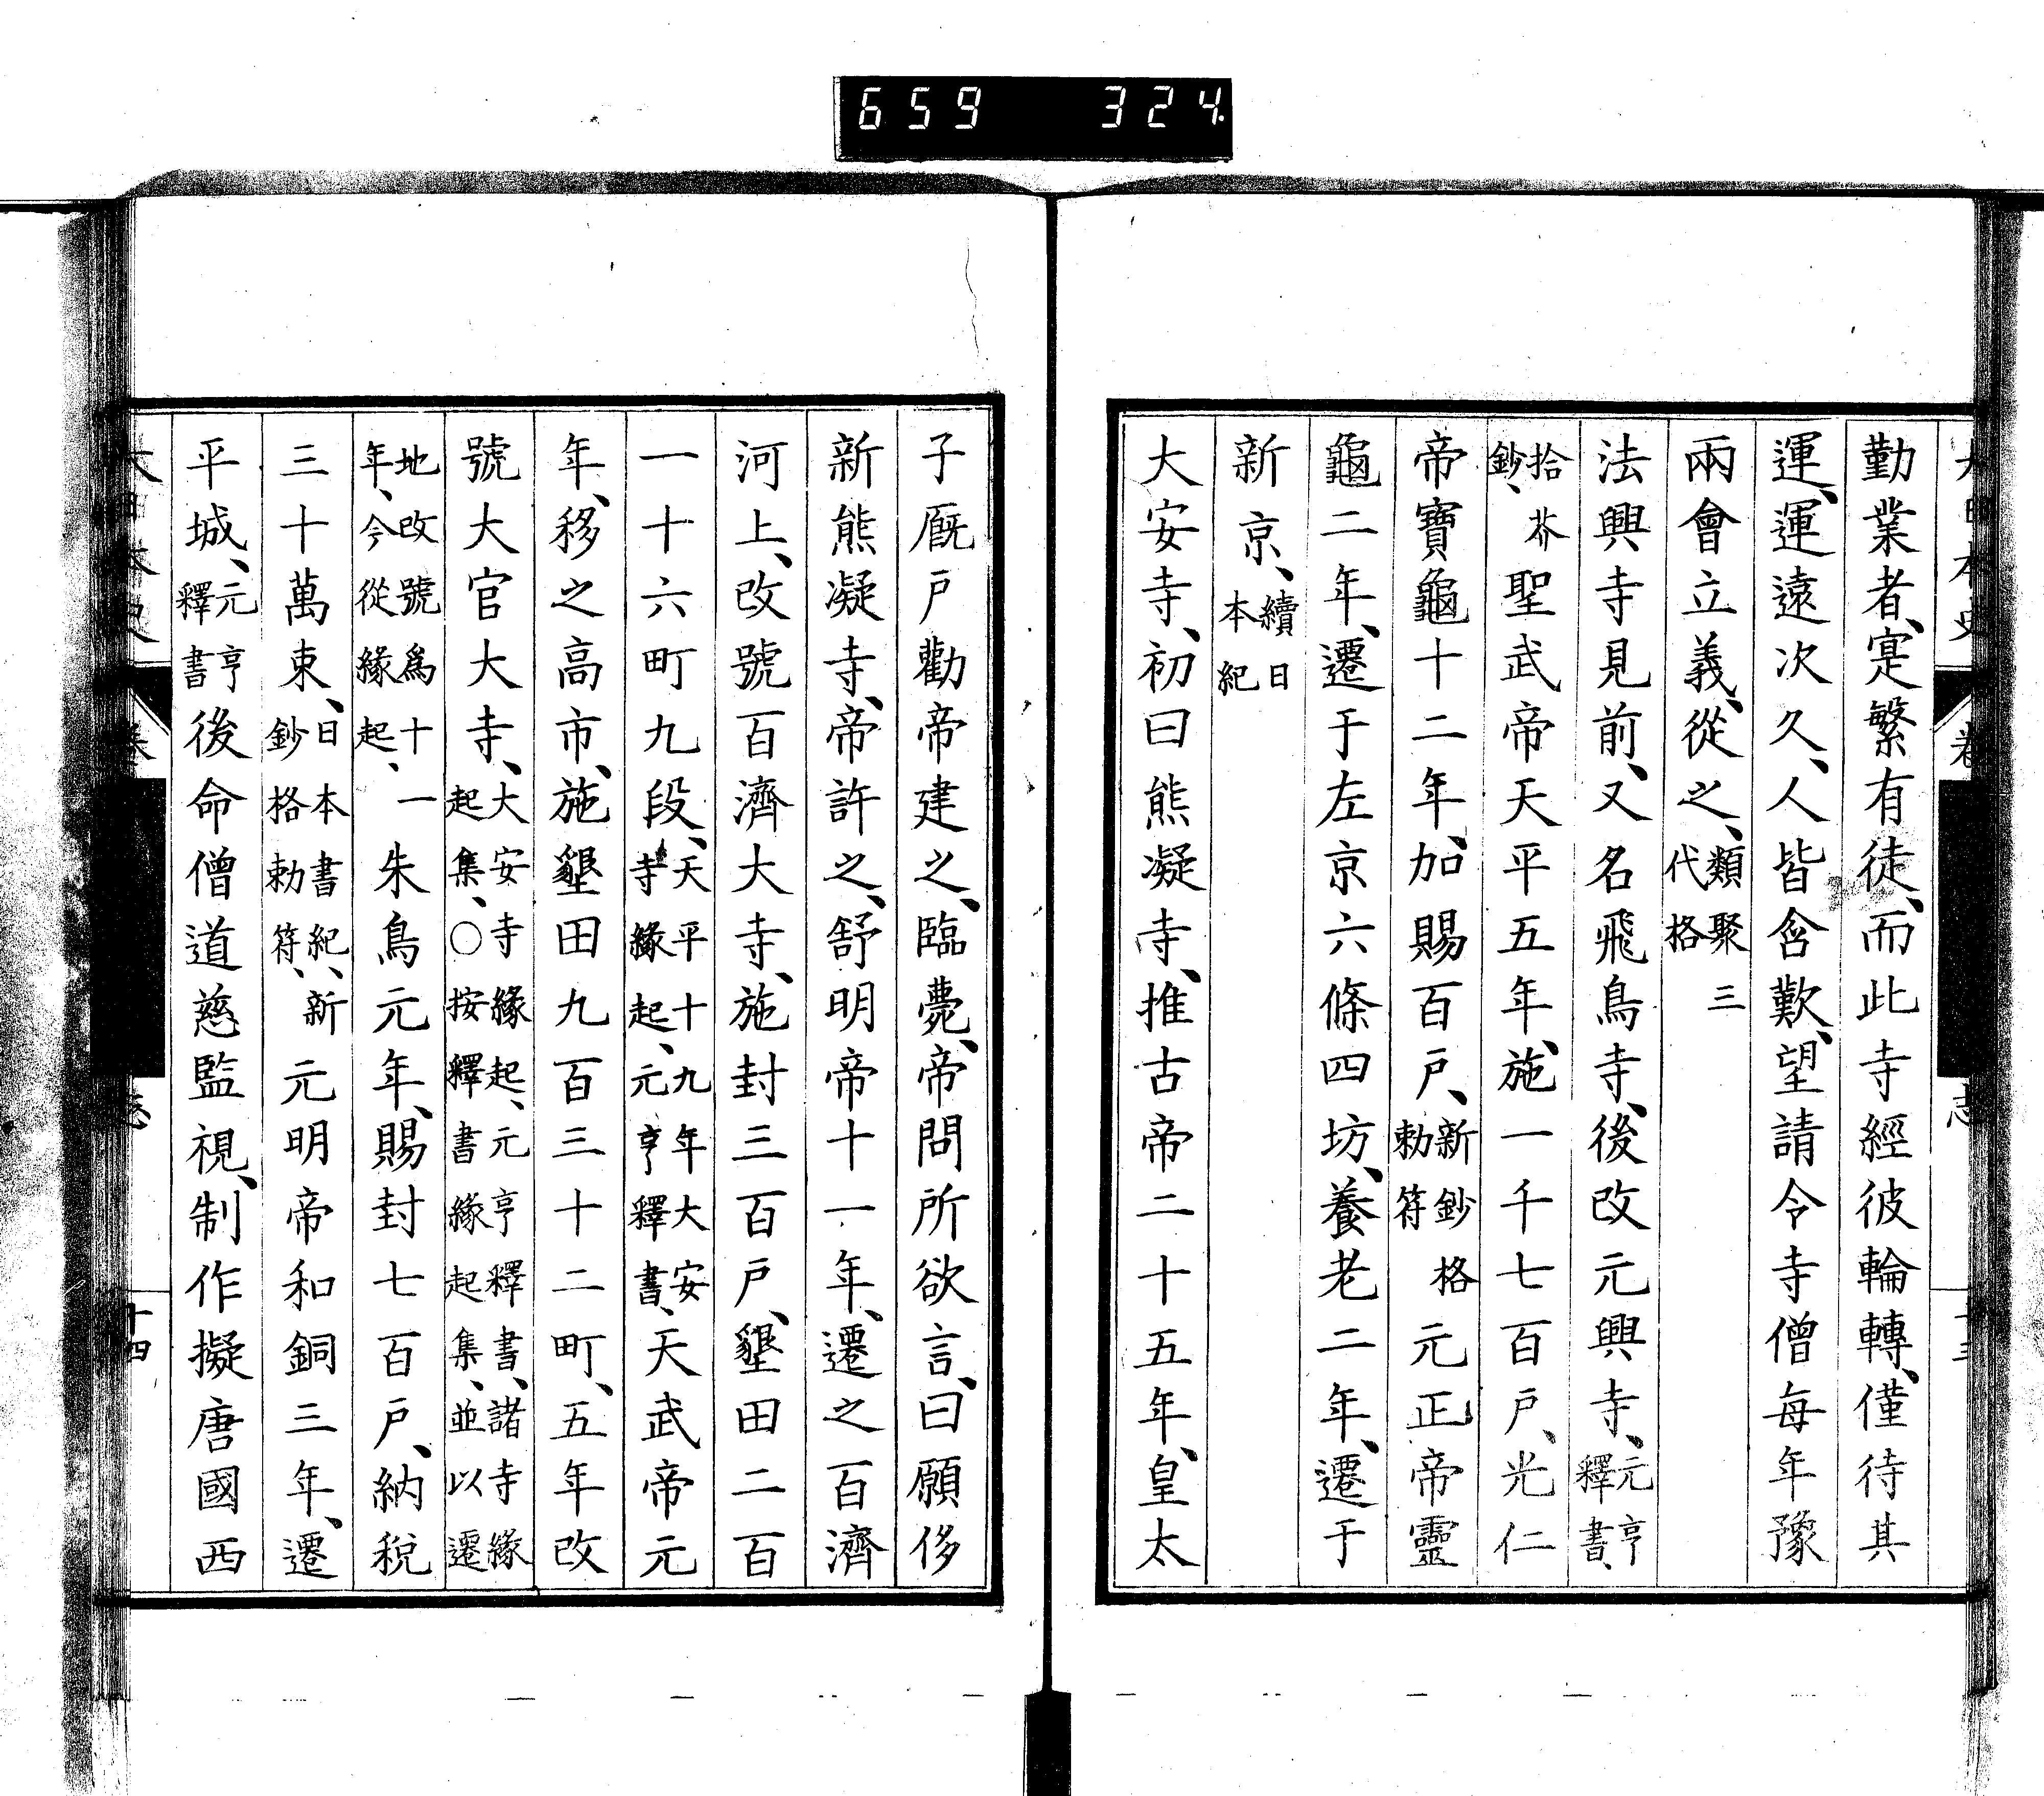 659 324
勤業者、寔繁有徒、而此寺經彼輪轉、僅待其
運、運遠次久、人皆含歎、望請令寺僧每年豫
兩會立義、從之、類聚三代格
法興寺見前、又名飛鳥寺、後改元興寺、元亨釋書、
拾芥鈔、聖武帝天平五年、施一千七百戶、光仁
帝寶龜十二年、加賜百戶、新鈔格勅符元正帝靈
龜二年、遷于左京六條四坊、養老二年、遷于
新京、續日本紀
大安寺、初曰熊凝寺、推古帝二十五年、皇太
子厩戶勸帝建之、臨薨、帝問所欲言、曰願侈
新熊凝寺、帝許之、舒明帝十一年、遷之百濟
河上、改號百濟大寺、施封三百戶、墾田二百
一十六町九段、天平十九年大安寺緣起、元亨釋書、天武帝元
年、移之高市、施墾田九百三十二町、五年改
號大官大寺、大安寺緣起、元亨釋書、諸寺緣起集、〇按釋書緣起集、並以遷
地改號爲十一年、今從緣起、朱鳥元年、賜封七百戶、納稅
三十萬束、日本書紀、新鈔格勅符、元明帝和銅三年、遷
平城、元亨釋書後命僧道慈監視、制作擬唐國西
大日本史
卷
志
十四